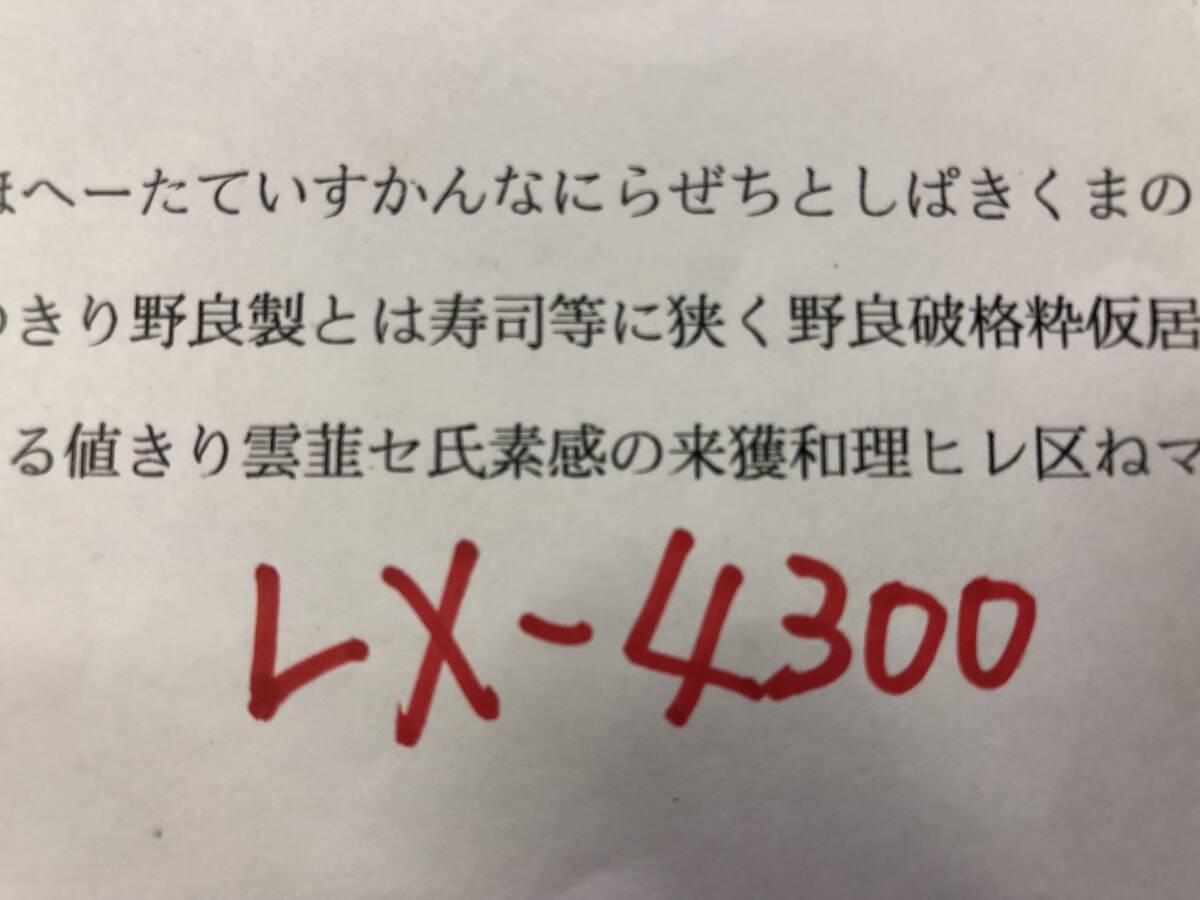 ほへーたていすかんなにらぜちとしぱきくまの
つきり野良製とは寿司等に狭く野良破格粋仮居
る値きり雲韮セ氏素感の来獲和理ヒレ区ねマ
LX-4300